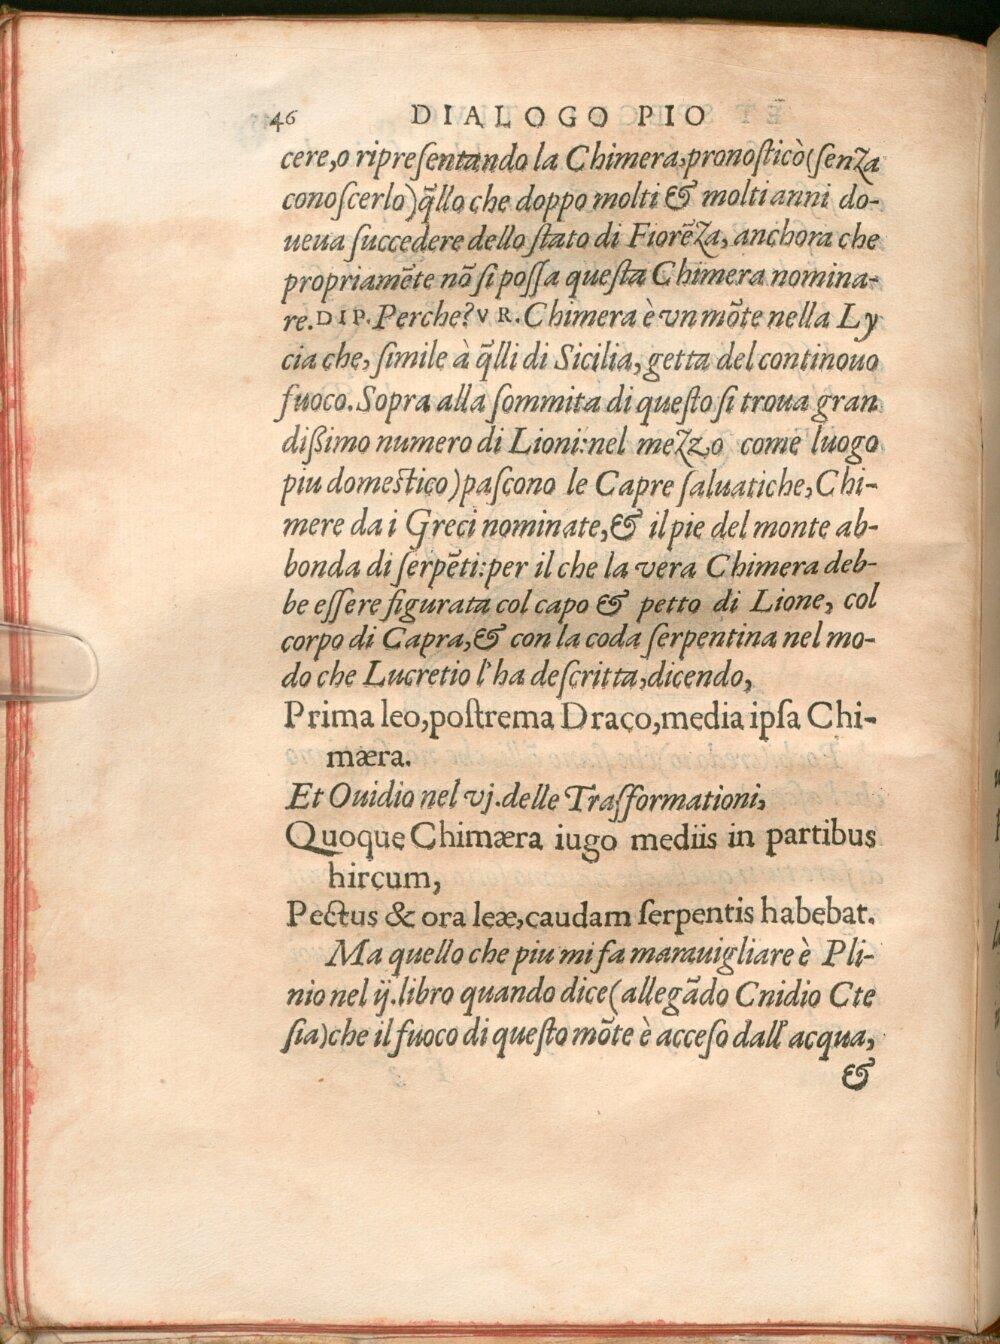 46 DIALOGO PIO
cere,o ripreſentando la Chimera,pronoſticò(ſenza
conoſcerlo)q̃llo che doppo molti & molti anni do-
ueua ſuccedere dello ſtato di Fiorẽza, anchora che
propriamẽte nõ ſi poſſa queſta Chimera nomina-
re.DIP.Perche?VR.Chimera è vn mõte nella Ly
cia che, ſimile à q̃lli di Sicilia, getta del continouo
fuoco. Sopra alla ſommita di queſto ſi troua gran
dißimo numero di Lioni:nel mezzo come luogo
piu domestico)paſcono le Capre ſaluatiche, Chi-
mere da i Greci nominate,& il pie del monte ab-
bonda di ſerpẽti:per il che la vera Chimera deb-
be eſſere figurata col capo & petto di Lione, col
corpo di Capra,& con la coda ſerpentina nel mo-
do che Lucretio l'ha deſcritta,dicendo,
Prima leo,poſtrema Draco,media ipſa Chi-
mæra.
Et Ouidio nel vj.delle Traſformationi,
Quoque Chimæra iugo mediis in partibus
hircum,
Pectus & ora leæ,caudam ſerpentis habebat.
Ma quello che piu mi fa marauigliare è Pli-
nio nel ij.libro quando dice(allegãdo Cnidio Cte
ſia)che il fuoco di queſto mõte è acceſo dall'acqua,
&